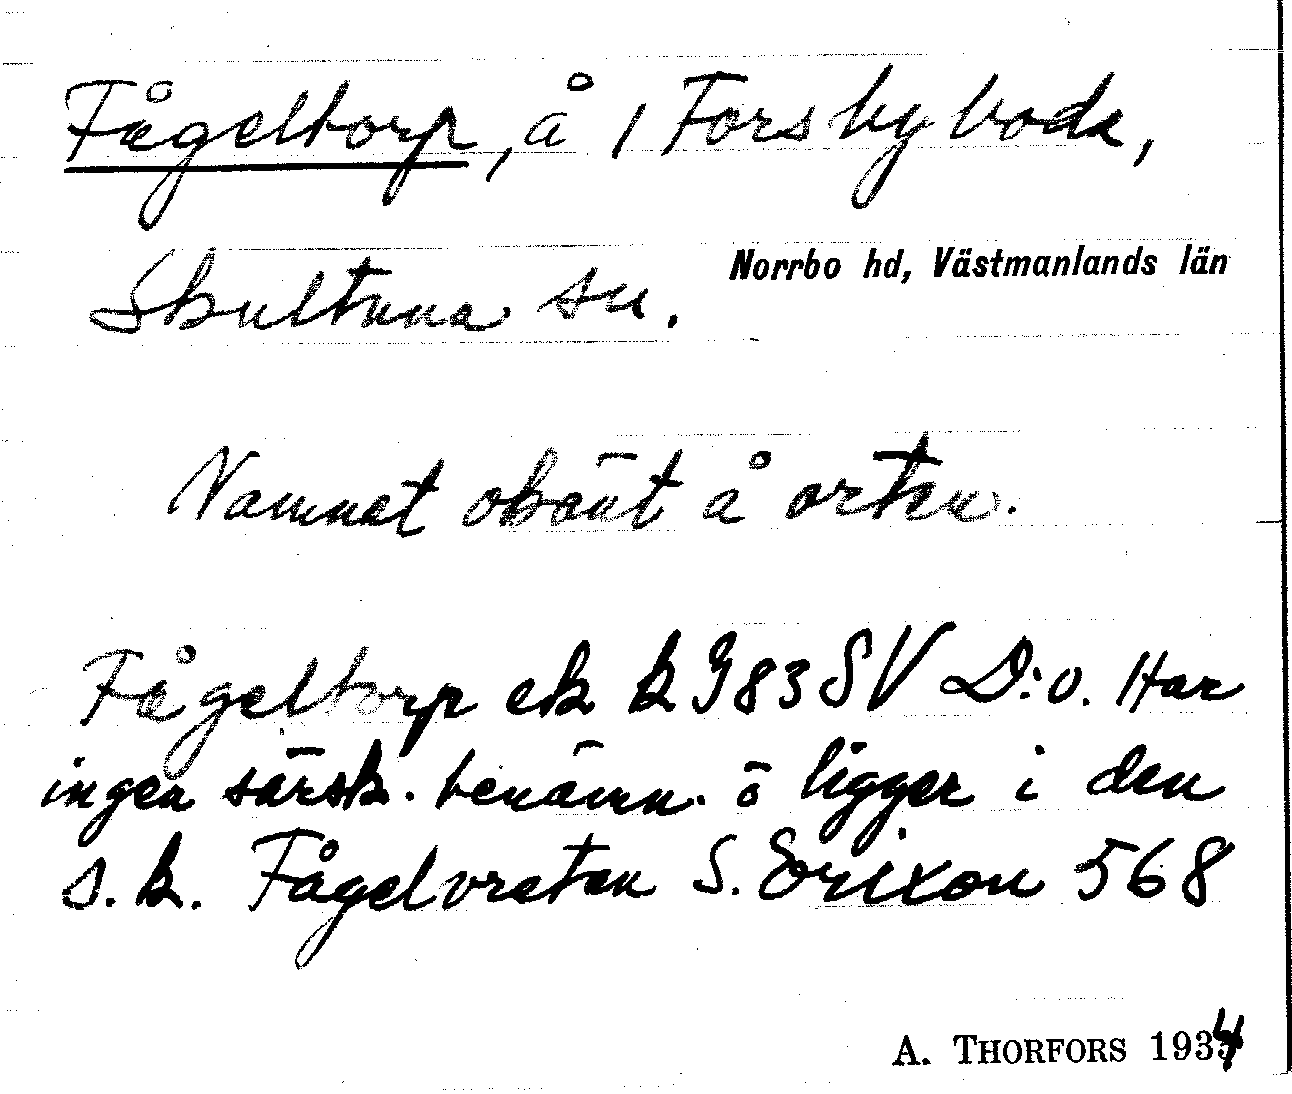 Fågeltorp, å 1 Forsbyboda,
Skultuna sn. Norrbo hd, Västmanlands län
Namnet okänt å orten.
Fågeltorp ek k 983 SV D:o. Har
ingen särsk. benämn. ö ligger i den
s.k. Fågelvreten S. Erixon 568
A. THORFORS 1934